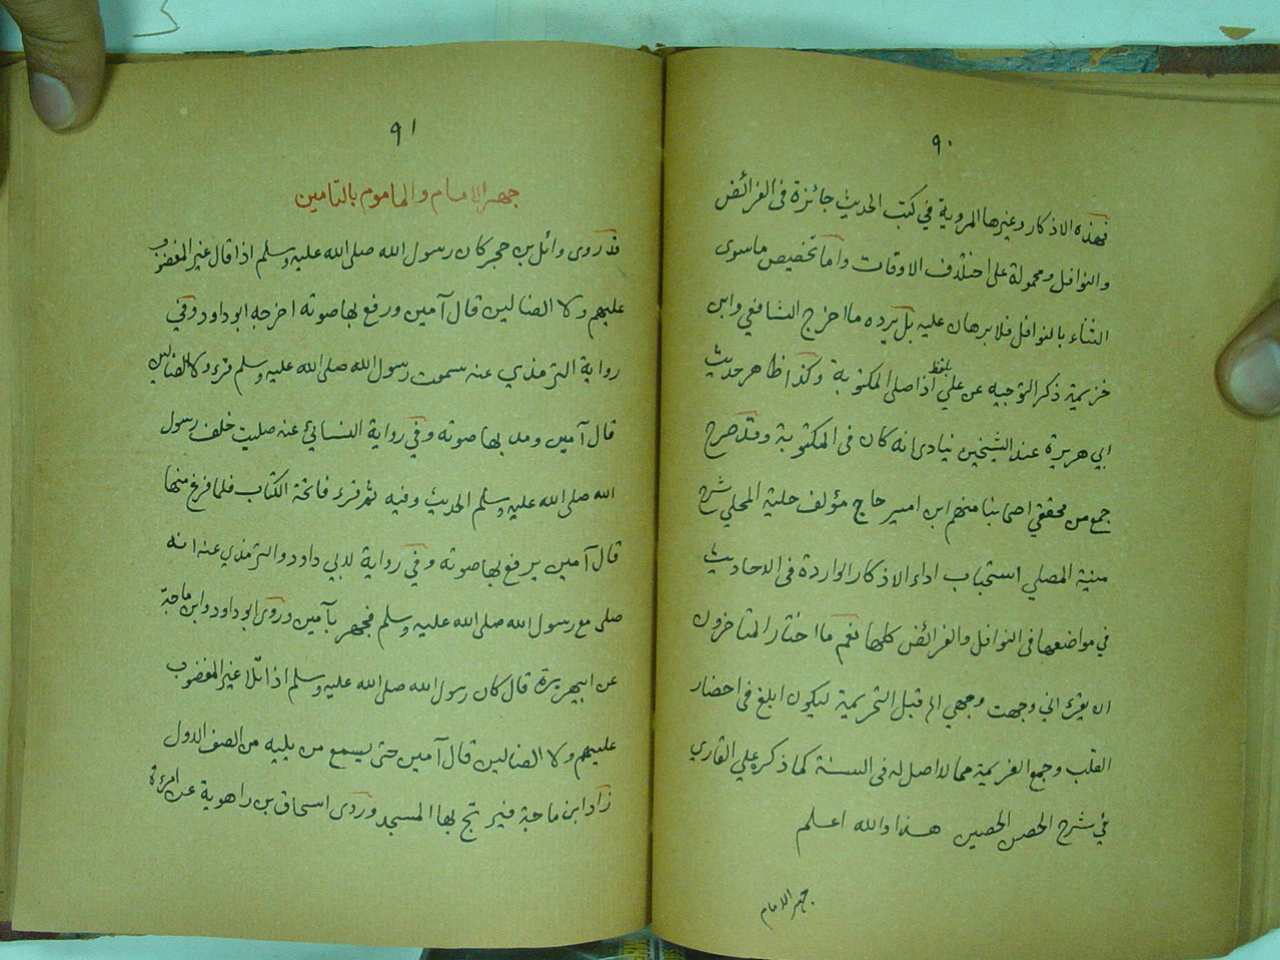 ٩٠
فهذه الاذكار وغيرها المروية في كتب الحديث جائزة في الفرائض
والنوافل ومحمولة على اختلاف الاوقات واما تخصيص ماسوى
الثناء بالنوافل فلا برهان عليه بل يرده ما اخرج الشافعي وابن
خزيمة ذكر التوجيه عن علي بلفظ اذا صلى المكتوبة وكذا ظاهر حديث
ابي هريرة عند الشيخين ينادى انه كان في المكتوبة وقد صرح
جمع من محققي اصحابنا منهم ابن امير حاج مؤلف حلية المحلي شرح
منية المصلي استحباب اداء الاذكار الواردة في الاحاديث
في مواضعها في النوافل والفرائض كلها نعم ما اختار المتاخرون
ان يقرء اني وجهت وجهي الخ قبل التحريمة ليكون ابلغ في احضار
القلب وجمع العزيمة مما لا اصل له في السنة كما ذكره علي القاري
في شرح الحصن الحصين هذا والله اعلم
جهر الامام
٩١
جهر الامام والماموم بالتامين
قد روى وائل بن حجر كان رسول الله صلى الله عليه وسلم اذا قال غير المغضوب
عليهم ولا الضالين قال آمين ورفع بها صوته اخرجه ابو داود وفي
رواية الترمذي عنه سمعت رسول الله صلى الله عليه وسلم قرء ولا الضالين
قال آمين ومد بها صوته وفي رواية النسائي عنه صليت خلف رسول
الله صلى الله عليه وسلم الحديث وفيه ثم قرء فاتحة الكتاب فلما فرغ منها
قال آمين يرفع بها صوته وفي رواية لابي داود والترمذي عنه انه
صلى مع رسول الله صلى الله عليه وسلم فجهر بآمين وروى ابو داود وابن ماجة
عن ابيهريرة قال كان رسول الله صلى الله عليه وسلم اذا تلا غير المغضوب
عليهم ولا الضالين قال آمين حتى يسمع من يليه من الصف الاول
زاد ابن ماجة فيرتج بها المسجد وروى اسحاق بن راهوية عن امرءة